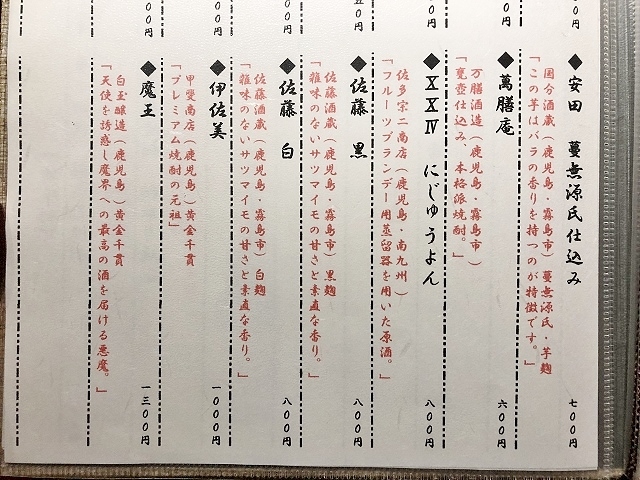 ◆安田 蔓無源氏仕込み 七〇〇円
国分酒蔵(鹿児島・霧島市)蔓無源氏・芋麹
「この芋はバラの香りを持つのが特徴です。」
◆萬膳庵 六〇〇円
万膳酒造(鹿児島・霧島市)
「甕壺仕込み、本格派焼酎。」
◆XXⅣ にじゅうよん 八〇〇円
佐多宗二商店(鹿児島・南九州)
「フルーツブランデー用蒸留器を用いた原酒。」
◆佐藤 黒 八〇〇円
佐藤酒蔵(鹿児島・霧島市)黒麹
「雑味のないサツマイモの甘さと素直な香り。」
◆佐藤 白 八〇〇円
佐藤酒蔵(鹿児島・霧島市)白麹
「雑味のないサツマイモの甘さと素直な香り。」
◆伊佐美 一〇〇〇円
甲斐商店(鹿児島)黄金千貫
「プレミアム焼酎の元祖」
◆魔王 一三〇〇円
白玉醸造(鹿児島)黄金千貫
「天使を誘惑し魔界への最高の酒を届ける悪魔。」